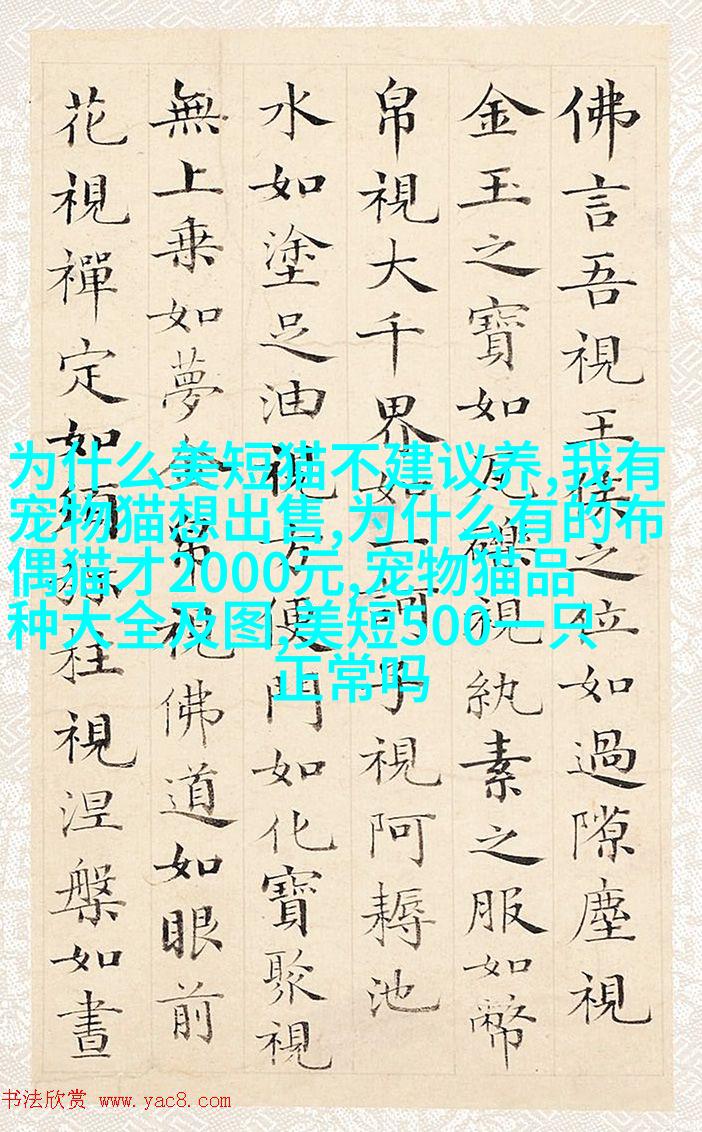 佛言吾視王侯之位如過隙塵視
金玉之寶如瓦礫視紈素之服如幣
帛視大千界如一訶子視阿耨池
水如塗足油視方便門如化寶聚視
無上乗如夢金帛視佛道如眼前
花視禪定如須彌柱視涅槃如晝
为什么美短猫不建议养,我有
宠物猫想出售,为什么有的布
偶猫才2000元,宠物猫品
种大全及图,美短500一只
正常吗
书法欣赏 www.yac8.com